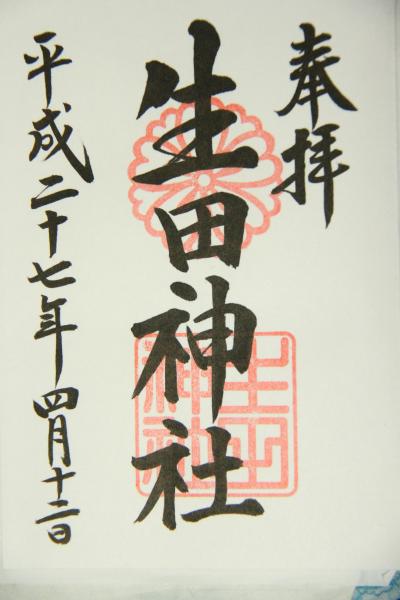 奉拝
生田神社
生田神社
平成二十七年四月十二日